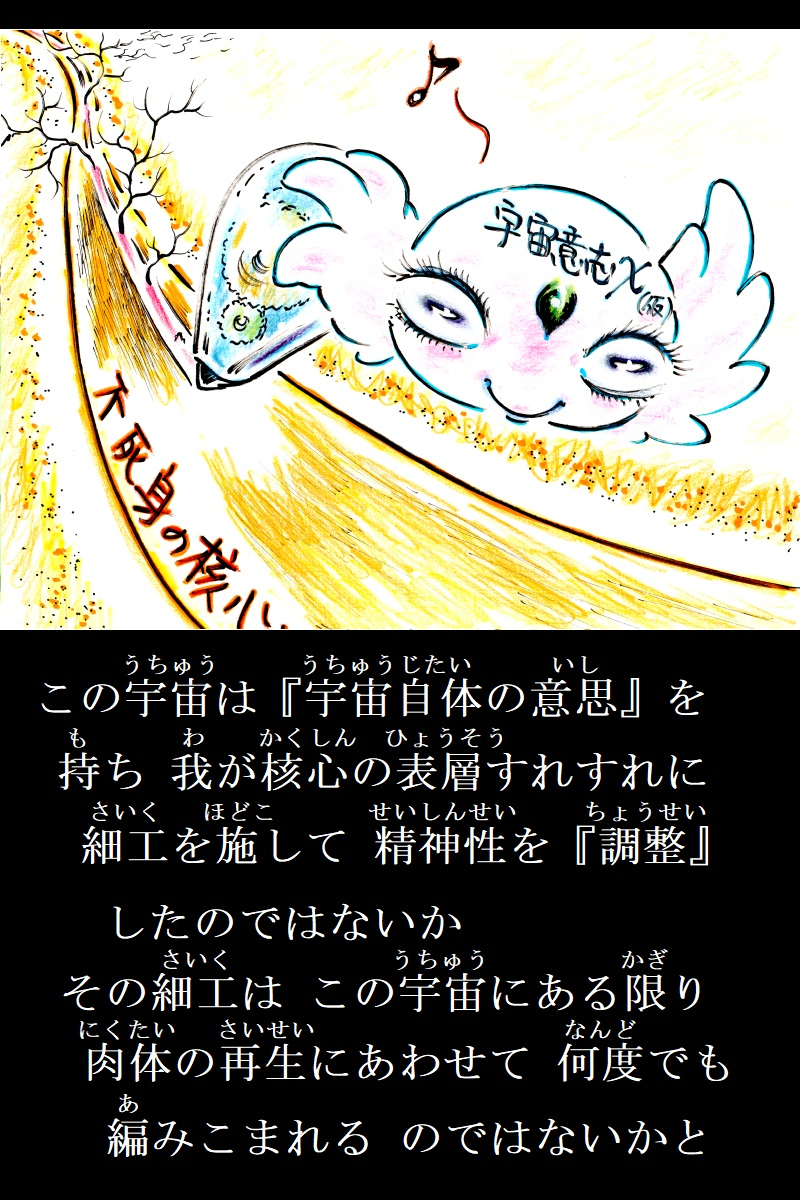 宇宙意志χ
(仮)
不死身の核心
うちゅう うちゅうじたい いし
この宇宙は『宇宙自体の意思』を
も わ かくしん ひょうそう
持ち 我が核心の表層すれすれに
さいく ほどこ せいしんせい ちょうせい
細工を施して 精神性を『調整』
したのではないか
さいく うちゅう かぎ
その細工は この宇宙にある限り
にくたい さいせい なんど
肉体の再生にあわせて 何度でも
あ
編みこまれる のではないかと